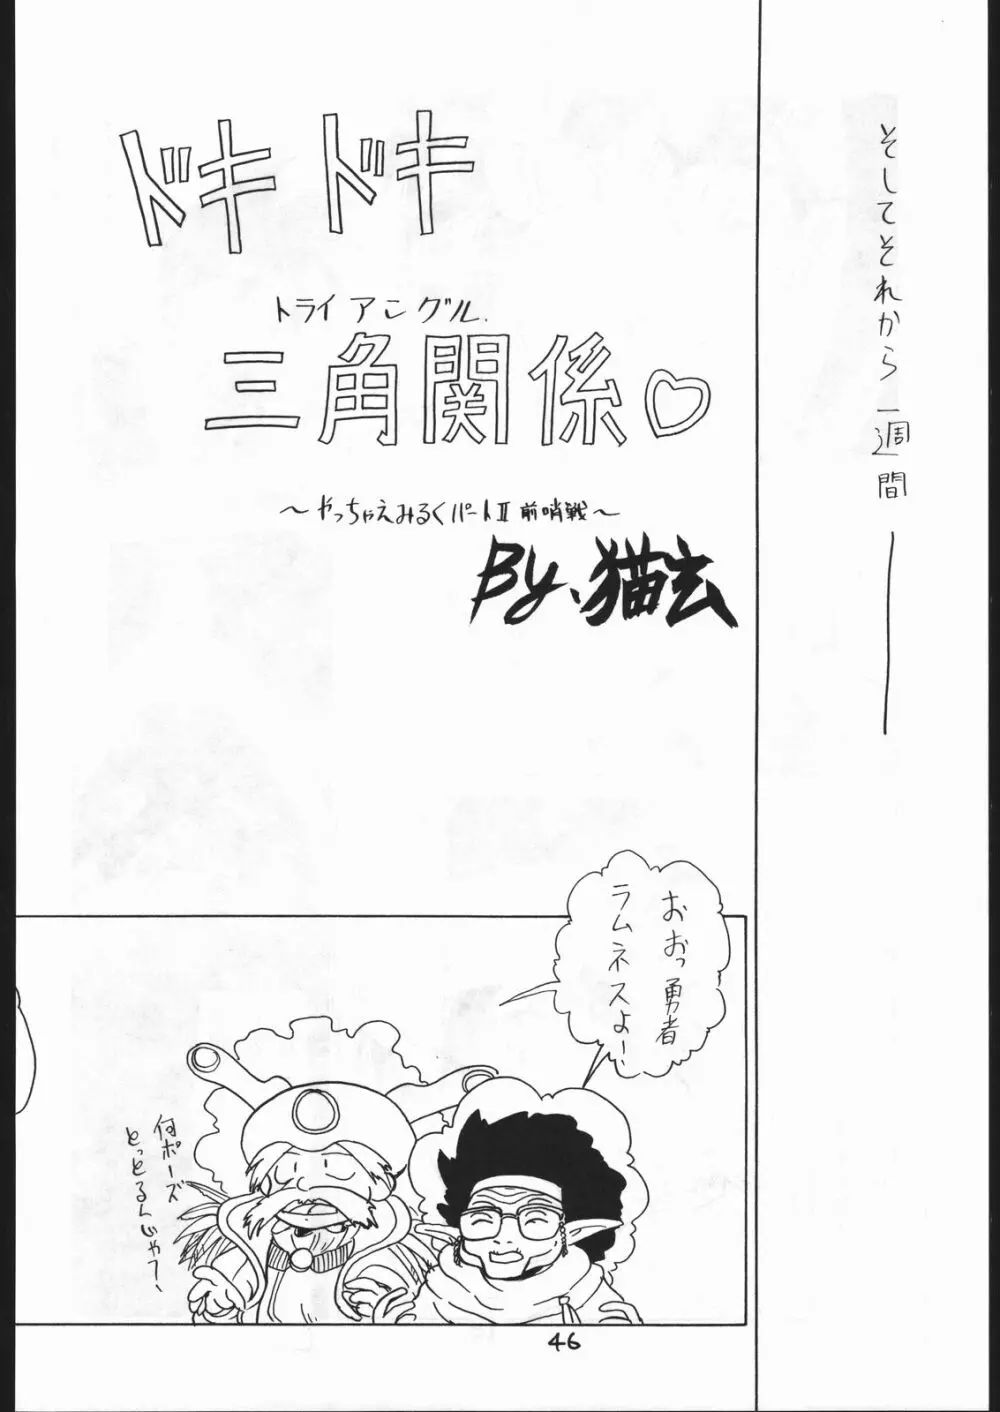 そしてそれから一週間――
ドキドキ
トライアングル
三角関係♡
～やっちゃえみるくパートII前哨戦～
By.猫玄
おおっ勇者
ラムネスよー！
何ポーズ
とっとるんじゃっ！
46